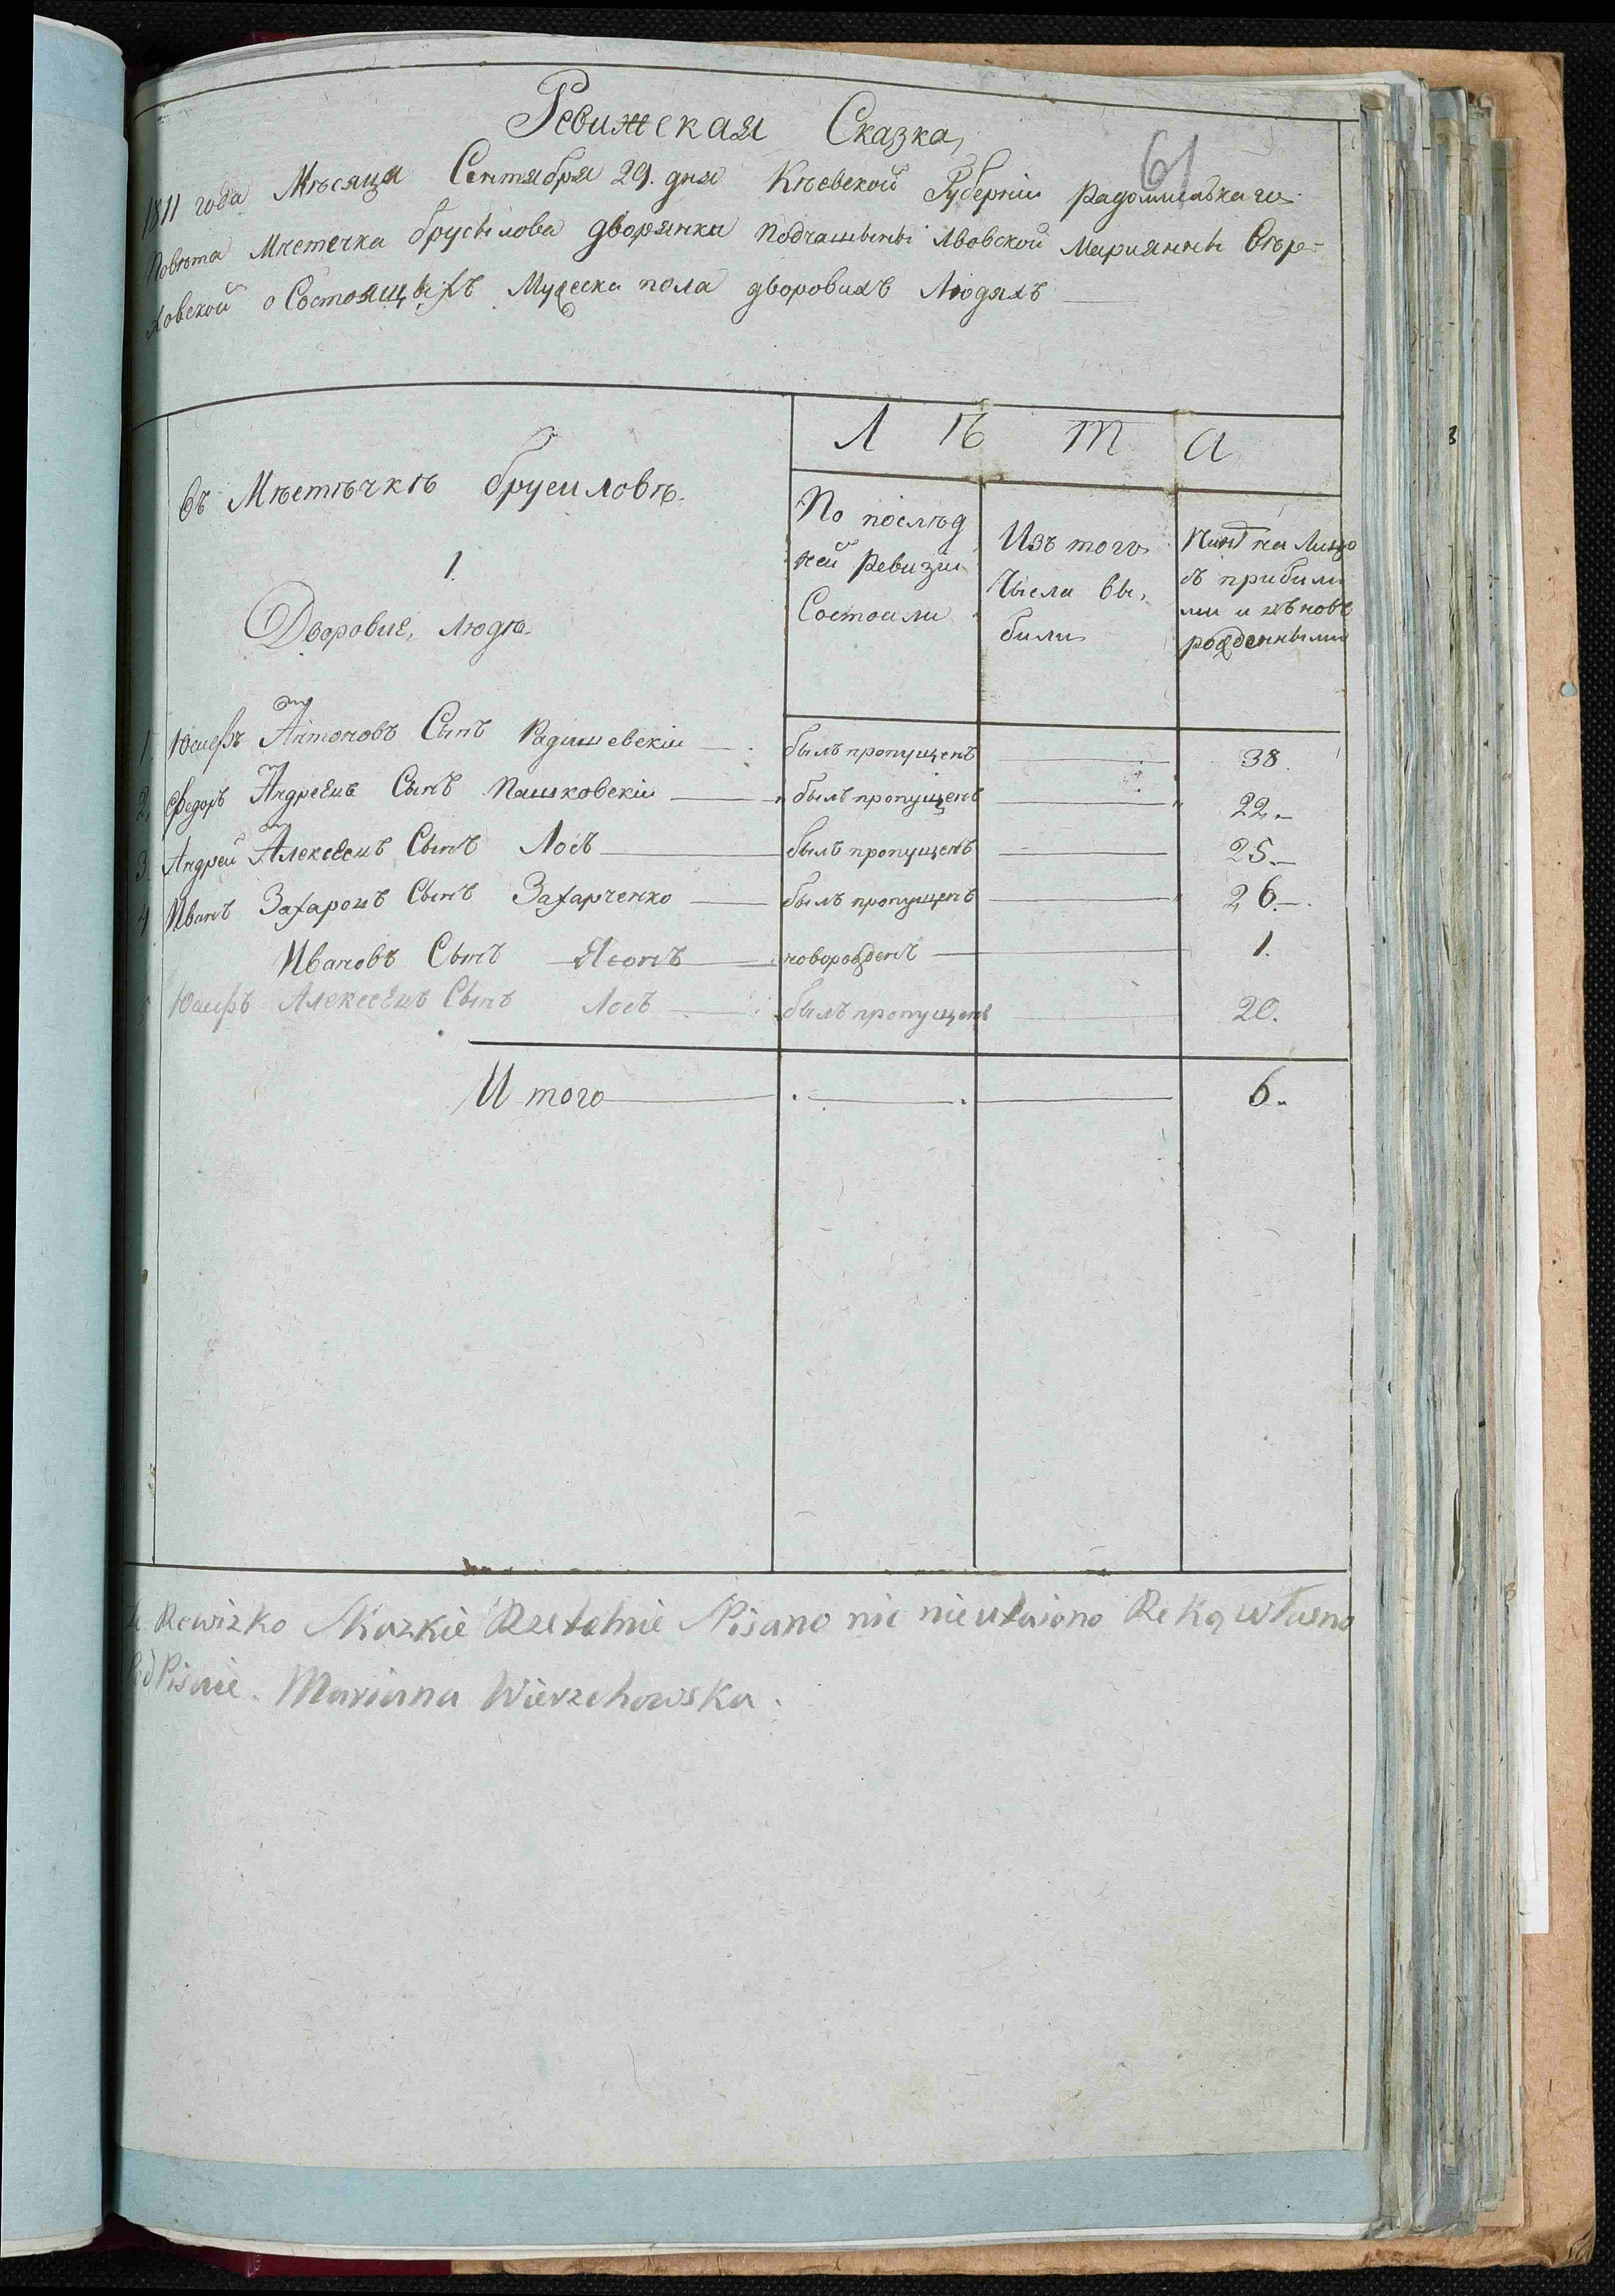 Ревижская Сказка,
61
1811 года Мѣсяца Сентября 29. дня Кіевской Губерніи Радомислскаго
Повѣта Мѣстечка Брусылова дворянки Подчашыны Львовской Марианны Вѣр=
ховской о Состоящыхъ Мужеска пола дворовихъ Людяхъ
Л Ѣ т а
въ Мѣстѣчкѣ Брусиловѣ.
1.
Дворовие, Людѣ.
По послѣд
ней Ревизіи
Состояли
Изъ того
Чысла вы,
были
на Лицо
съ прибили
ми и зъ новъ
рожденными
1. Юсифъ Антоновъ Сынъ Радишевскіи былъ пропущенъ 38.
2. Федоръ Андреевъ Сынъ Пашковскіи былъ пропущенъ 22.
3. Андрей Алексеевъ Сынъ Лосъ былъ пропущенъ 25.
4 Иванъ Захаровъ Сынъ Захарченко былъ пропущенъ 26.
Ивановъ Сынъ Леонъ новорожденъ 1.
Юсифъ Алексеевъ Сынъ Лосъ былъ пропущенъ 20.
И того 6.
Rewizko Skazkie Rzetelnie Pisano nic nieutaiono Ręką własno
PodPisuie. Marianna Wierzchowska.